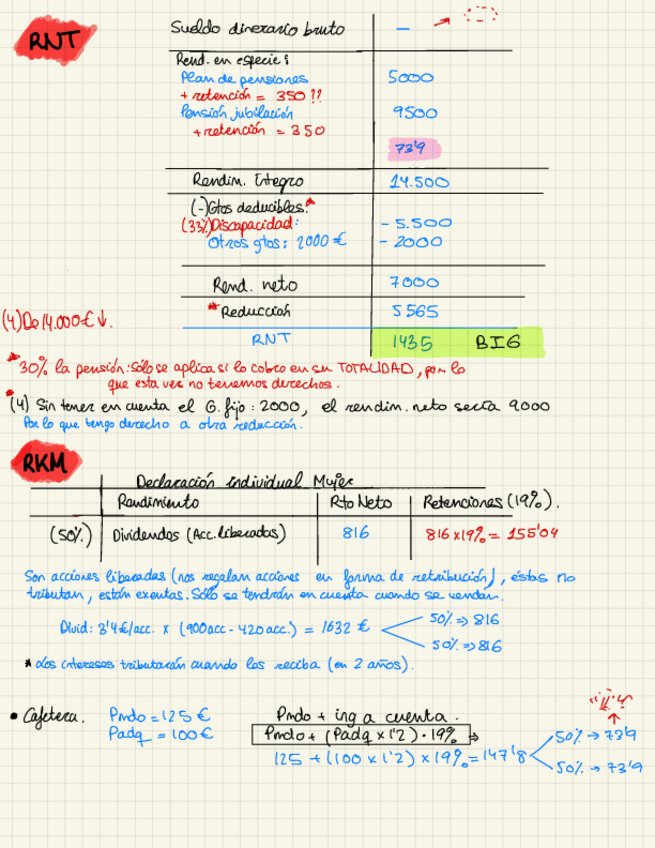 RNT
Sueldo dinerario bruto —
Rend. en especie:
Plan de pensiones 5000
+ retención = 350 ??
Pensión jubilación 9500
+ retención = 350
73'9
Rendim. Íntegro 14.500
(-) Gtos deducibles:*
(33%) Discapacidad: - 5.500
Otros gtos: 2000 € - 2000
Rend. neto 7000
* Reducción 5565
(4) De 14.000€ ↓.
RNT 1435 BIG
* 30% la pensión: Sólo se aplica si lo cobro en su TOTALIDAD, por lo
que esta vez no tenemos derechos.
* (4) Sin tener en cuenta el G. fijo: 2000, el rendim. neto sería 9000
Por lo que tengo derecho a otra reducción.
RKM
Declaración individual Mujer
Rendimiento Rto Neto Retenciones (19%).
(50%) Dividendos (Acc. liberadas) 816 816 x 19% = 155'04
Son acciones liberadas (nos regalan acciones en forma de retribución), éstas no
tributan, están exentas. Sólo se tendrán en cuenta cuando se vendan.
Divid: 3'4€/acc. x (900acc - 420acc.) = 1632 €
50% => 816
50% => 816
* Los intereses tributarán cuando los reciba (en 2 años).
• Cafetera. Pmdo = 125 € Pmdo + ing a cuenta.
Padq = 100€ Pmdo + (Padq x 1'2) · 19% →
125 + (100 x 1'2) x 19% = 147'8
50% → 73'9
50% → 73'9